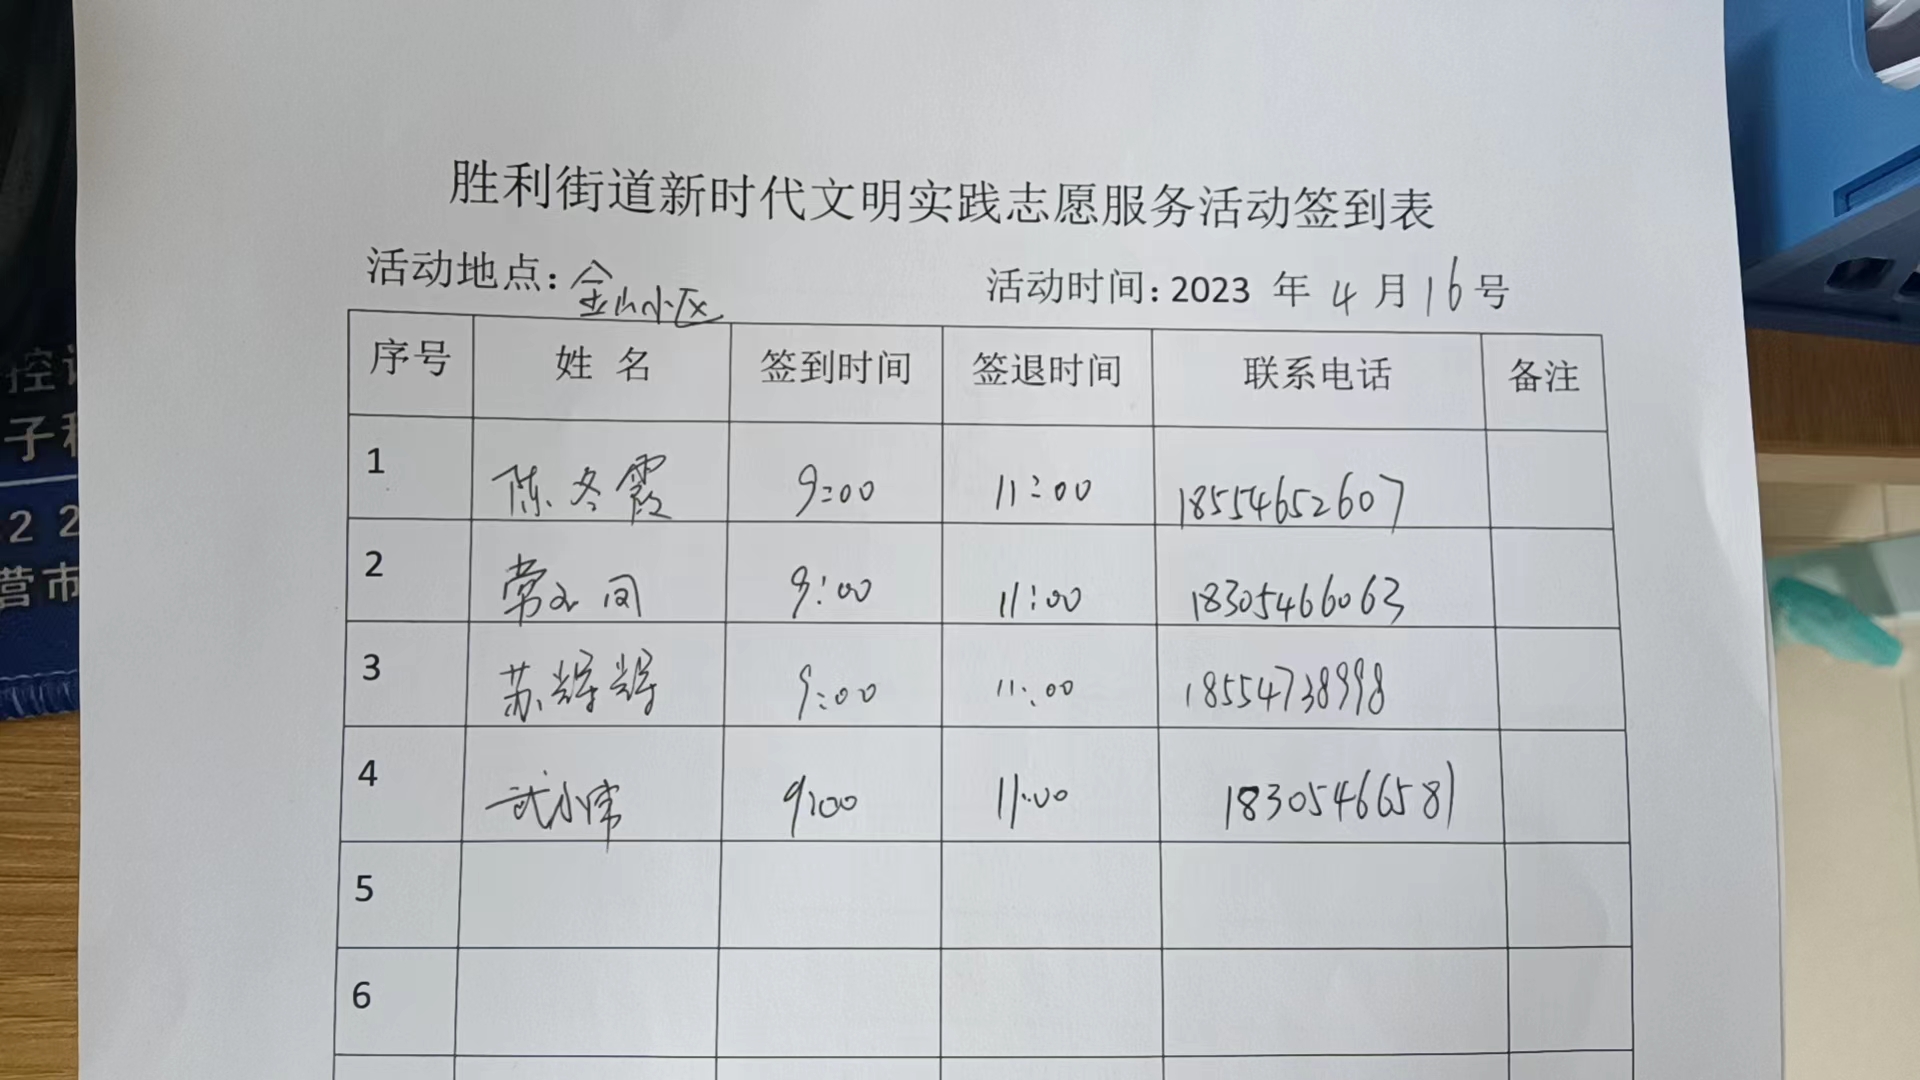 胜利街道新时代文明实践志愿服务活动签到表
活动地点：金山小区 活动时间：2023 年 4 月 16 号
序号 姓 名 签到时间 签退时间 联系电话 备注
1 陈冬霞 9:00 11:00 18554652607
2 常 9:00 11:00 18305466063
3 苏辉辉 9:00 11:00 18554738998
4 武小常 9:00 11:00 18305466581
5
6
控
子
2 2
营市